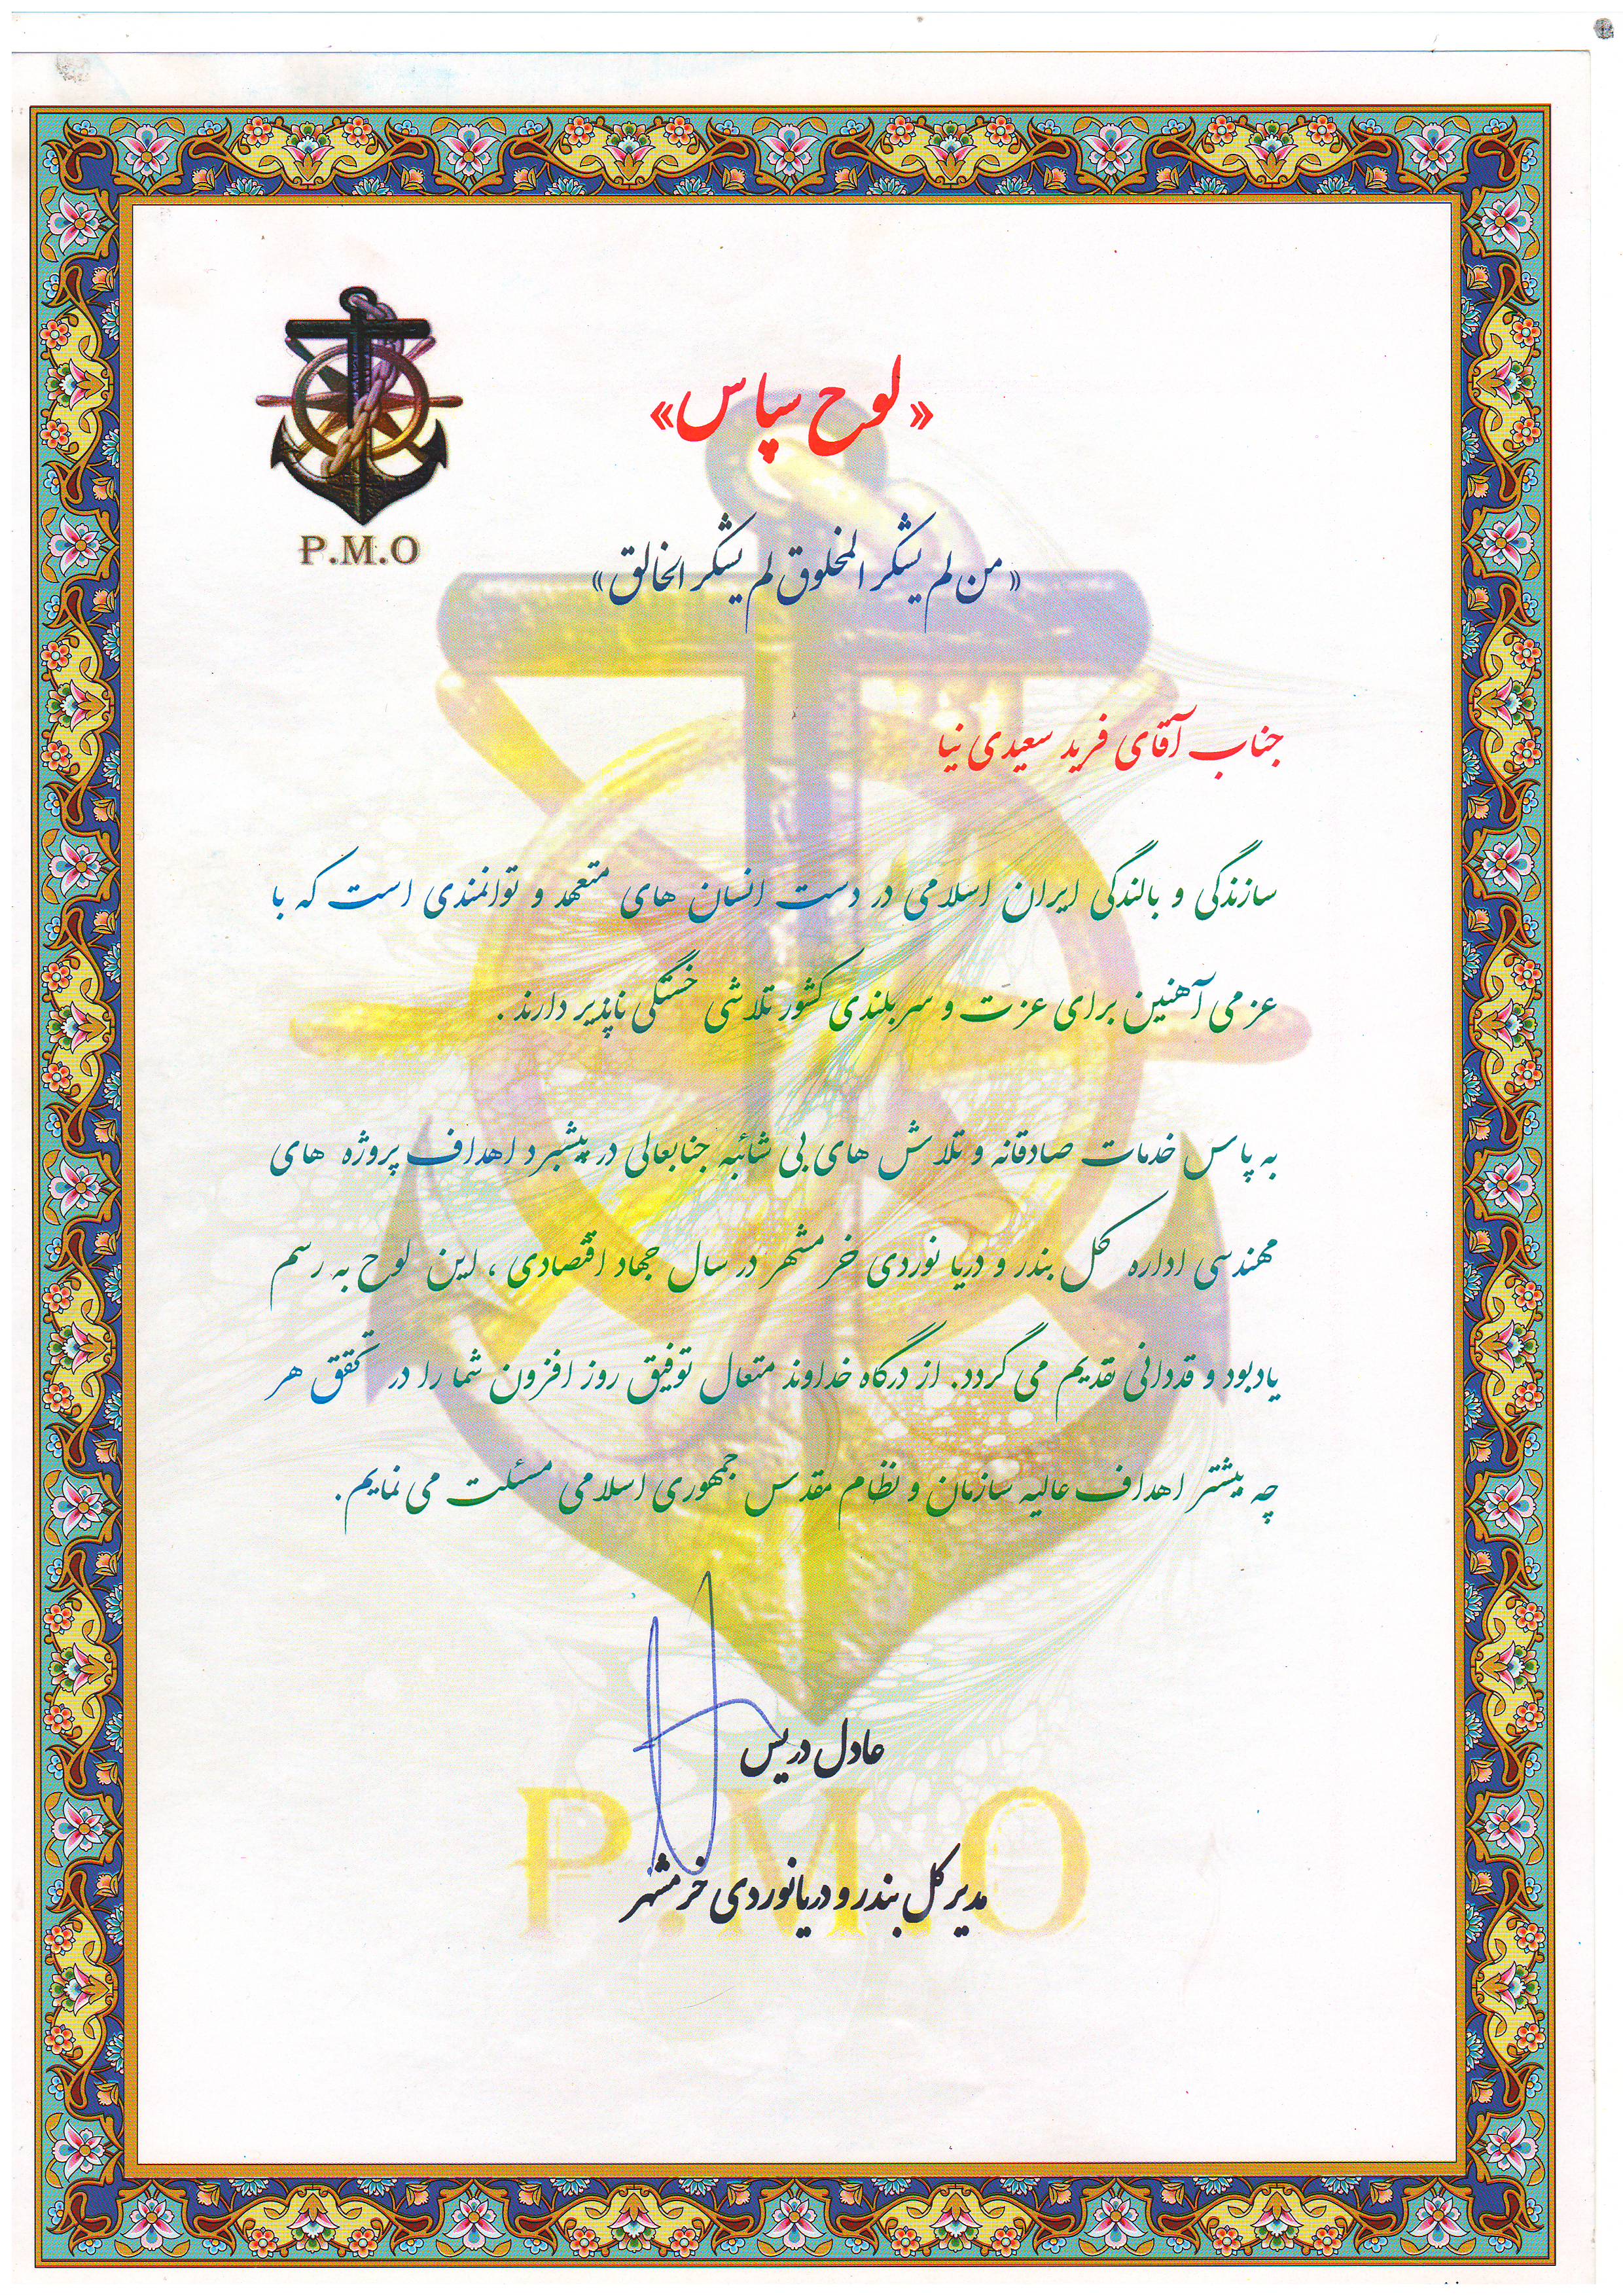 P.M.O
«لوح سپاس»
«من لم یشکر المخلوق لم یشکر الخالق»
جناب آقای فرید سعیدی نیا
سازندگی و بالندگی ایران اسلامی در دست انسان های متعهد و توانمندی است که با
عزمی آهنین برای عزت و سربلندی کشور تلاشی خستگی ناپذیر دارند .
به پاس خدمات صادقانه و تلاش های بی شائبه جنابعالی در پیشبرد اهداف پروژه های
مهندسی اداره کل بندر و دریا نوردی خرمشهر در سال جهاد اقتصادی ، این لوح به رسم
یادبود و قددانی تقدیم می گردد. از درگاه خداوند متعال توفیق روز افزون شما را در تحقق هر
چه بیشتر اهداف عالیه سازمان و نظام مقدس جمهوری اسلامی مسئلت می نمایم.
عادل دریس
P.M.O
مدیر کل بندر و دریانوردی خرمشهر